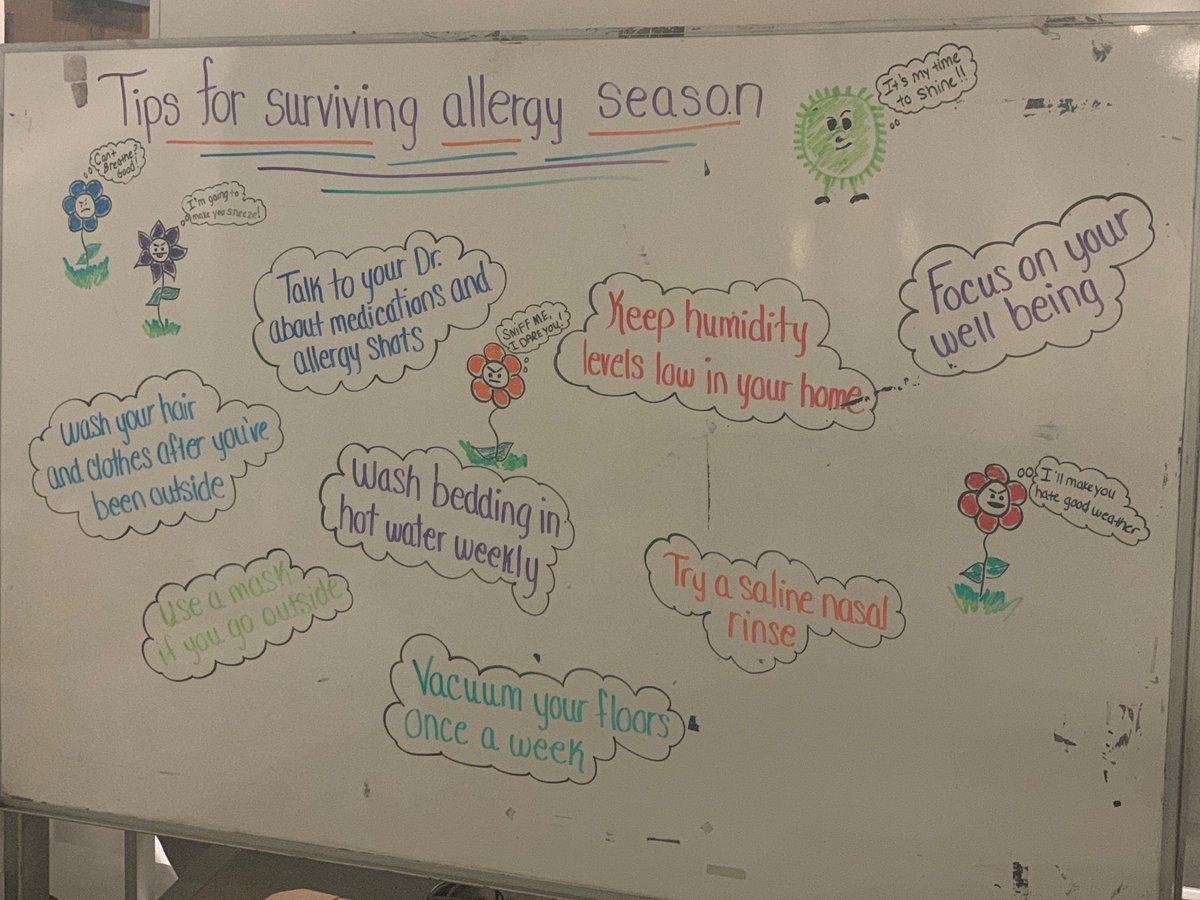 Tips for surviving allergy season
It's my time
to shine!!
Can't
Breathe?
Good!
I'm going to
make you sneeze!
Talk to your Dr.
about medications and
allergy shots
SNIFF ME,
I DARE YOU!
Keep humidity
levels low in your home
Focus on your
well being
Wash your hair
and clothes after you've
been outside
Wash bedding in
hot water weekly
I'll make you
hate good weather
Use a mask
if you go outside
Try a saline nasal
rinse
Vacuum your floors
once a week